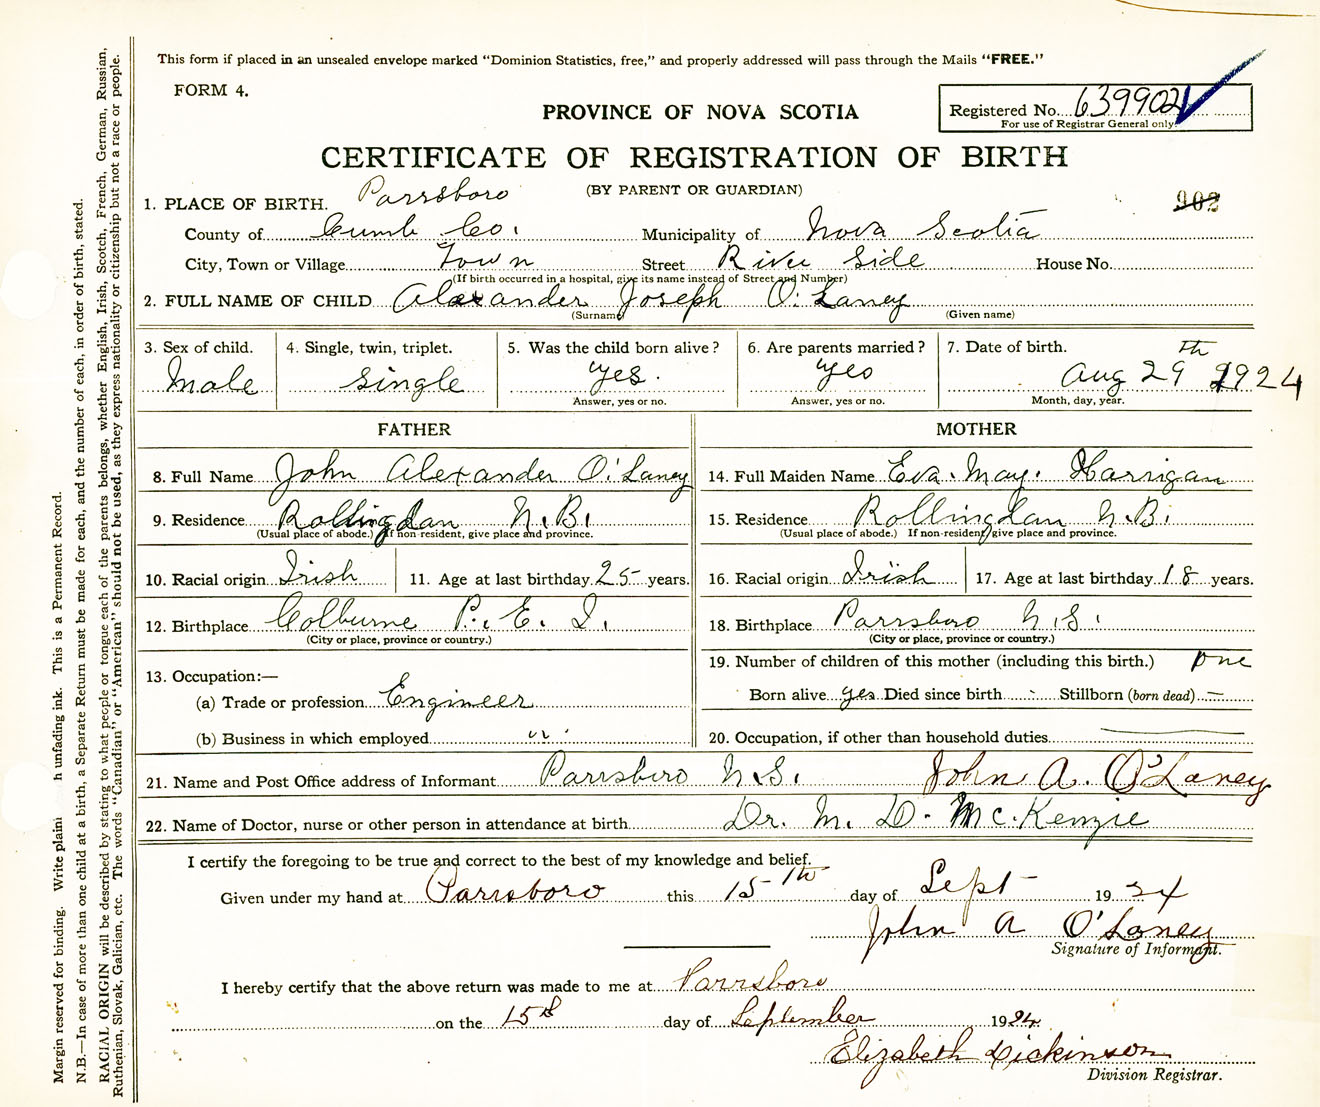 This form if placed in an unsealed envelope marked "Dominion Statistics, free," and properly addressed will pass through the Mails "FREE."
FORM 4.
PROVINCE OF NOVA SCOTIA
Registered No. 639902
For use of Registrar General only.
CERTIFICATE OF REGISTRATION OF BIRTH
(BY PARENT OR GUARDIAN)
902
1. PLACE OF BIRTH. Parrsboro
County of Cumb Co. Municipality of Nova Scotia
City, Town or Village Town Street River Side House No.
(If birth occurred in a hospital, give its name instead of Street and Number)
2. FULL NAME OF CHILD Alexander Joseph O'Laney
(Surname) (Given name)
3. Sex of child. 4. Single, twin, triplet. 5. Was the child born alive? 6. Are parents married? 7. Date of birth.
Male single yes. yes Aug 29th 1924
Answer, yes or no. Answer, yes or no. Month, day, year.
FATHER MOTHER
8. Full Name John Alexander O'Laney 14. Full Maiden Name Eva May Harrigan
9. Residence Rollingdan N.B. 15. Residence Rollingdan N.B.
(Usual place of abode.) If non-resident, give place and province. (Usual place of abode.) If non-resident, give place and province.
10. Racial origin Irish 11. Age at last birthday 25 years. 16. Racial origin Irish 17. Age at last birthday 18 years.
12. Birthplace Colburne P.E.I. 18. Birthplace Parrsboro N.S.
(City or place, province or country.) (City or place, province or country.)
13. Occupation:— 19. Number of children of this mother (including this birth.) one
(a) Trade or profession Engineer Born alive yes Died since birth - Stillborn (born dead) —
(b) Business in which employed " 20. Occupation, if other than household duties
21. Name and Post Office address of Informant Parrsboro N.S. John A. O'Laney
22. Name of Doctor, nurse or other person in attendance at birth Dr. M. D. McKenzie
I certify the foregoing to be true and correct to the best of my knowledge and belief.
Given under my hand at Parrsboro this 15th day of Sept 1924
John A O'Laney
Signature of Informant.
I hereby certify that the above return was made to me at Parrsboro
on the 15th day of September 1924
Elizabeth Dickinson
Division Registrar.
Margin reserved for binding. Write plain h unfading ink. This is a Permanent Record.
N.B.—In case of more than one child at a birth, a Separate Return must be made for each, and the number of each, in order of birth, stated.
RACIAL ORIGIN will be described by stating to what people or tongue each of the parents belongs, whether English, Irish, Scotch, French, German, Russian,
Ruthenian, Slovak, Galician, etc. The words "Canadian" or "American" should not be used, as they express nationality or citizenship but not a race or people.